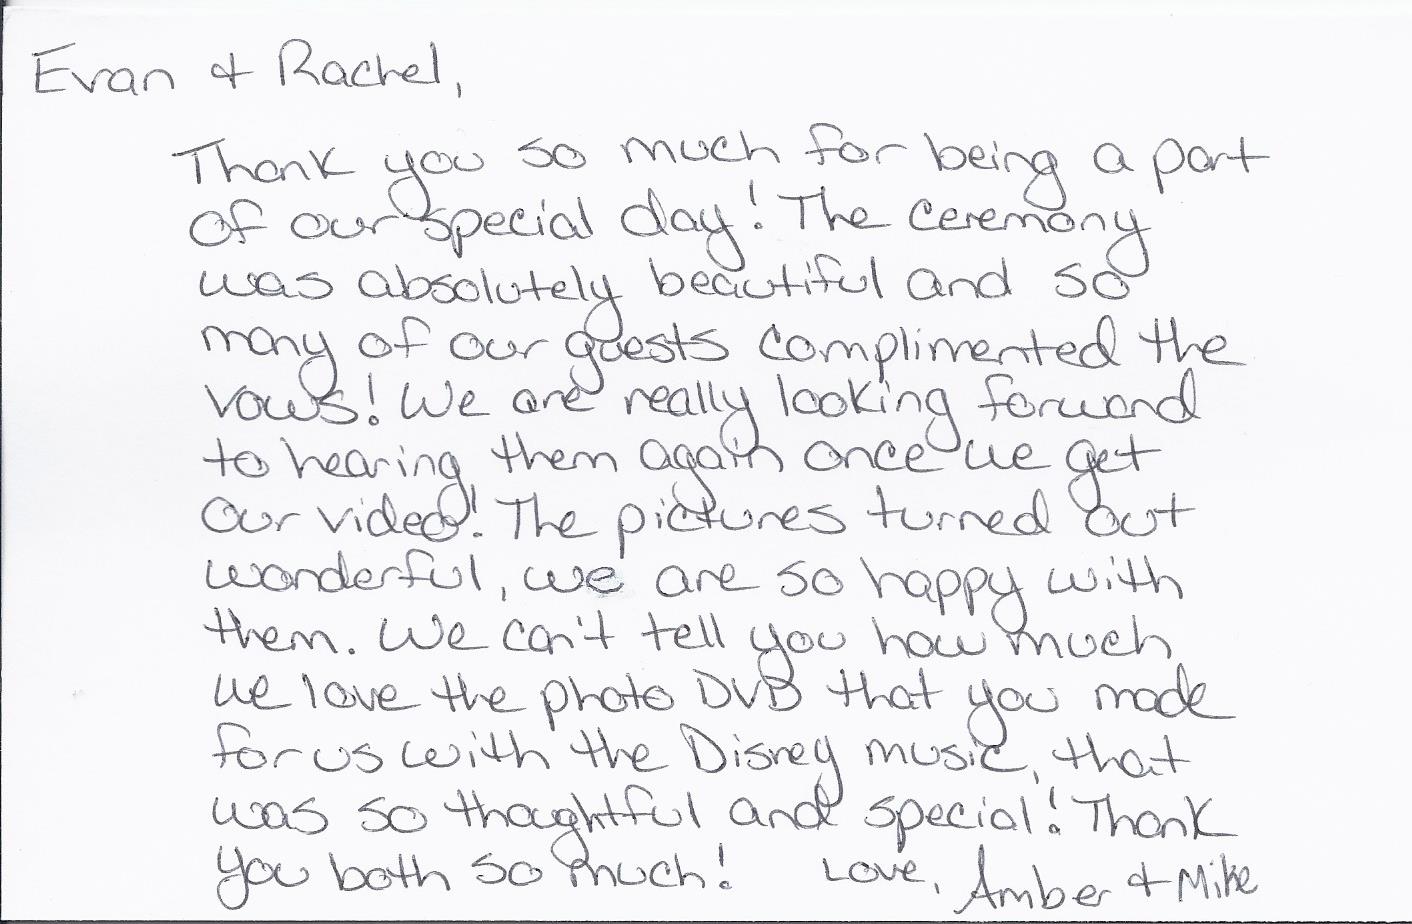 Evan & Rachel,
Thank you so much for being a part
of our special day! The ceremony
was absolutely beautiful and so
many of our guests complimented the
vows! We are really looking forward
to hearing them again once we get
our video! The pictures turned out
wonderful, we are so happy with
them. We can't tell you how much
we love the photo DVD that you made
for us with the Disney music, that
was so thoughtful and special! Thank
you both so much! Love, Amber & Mike